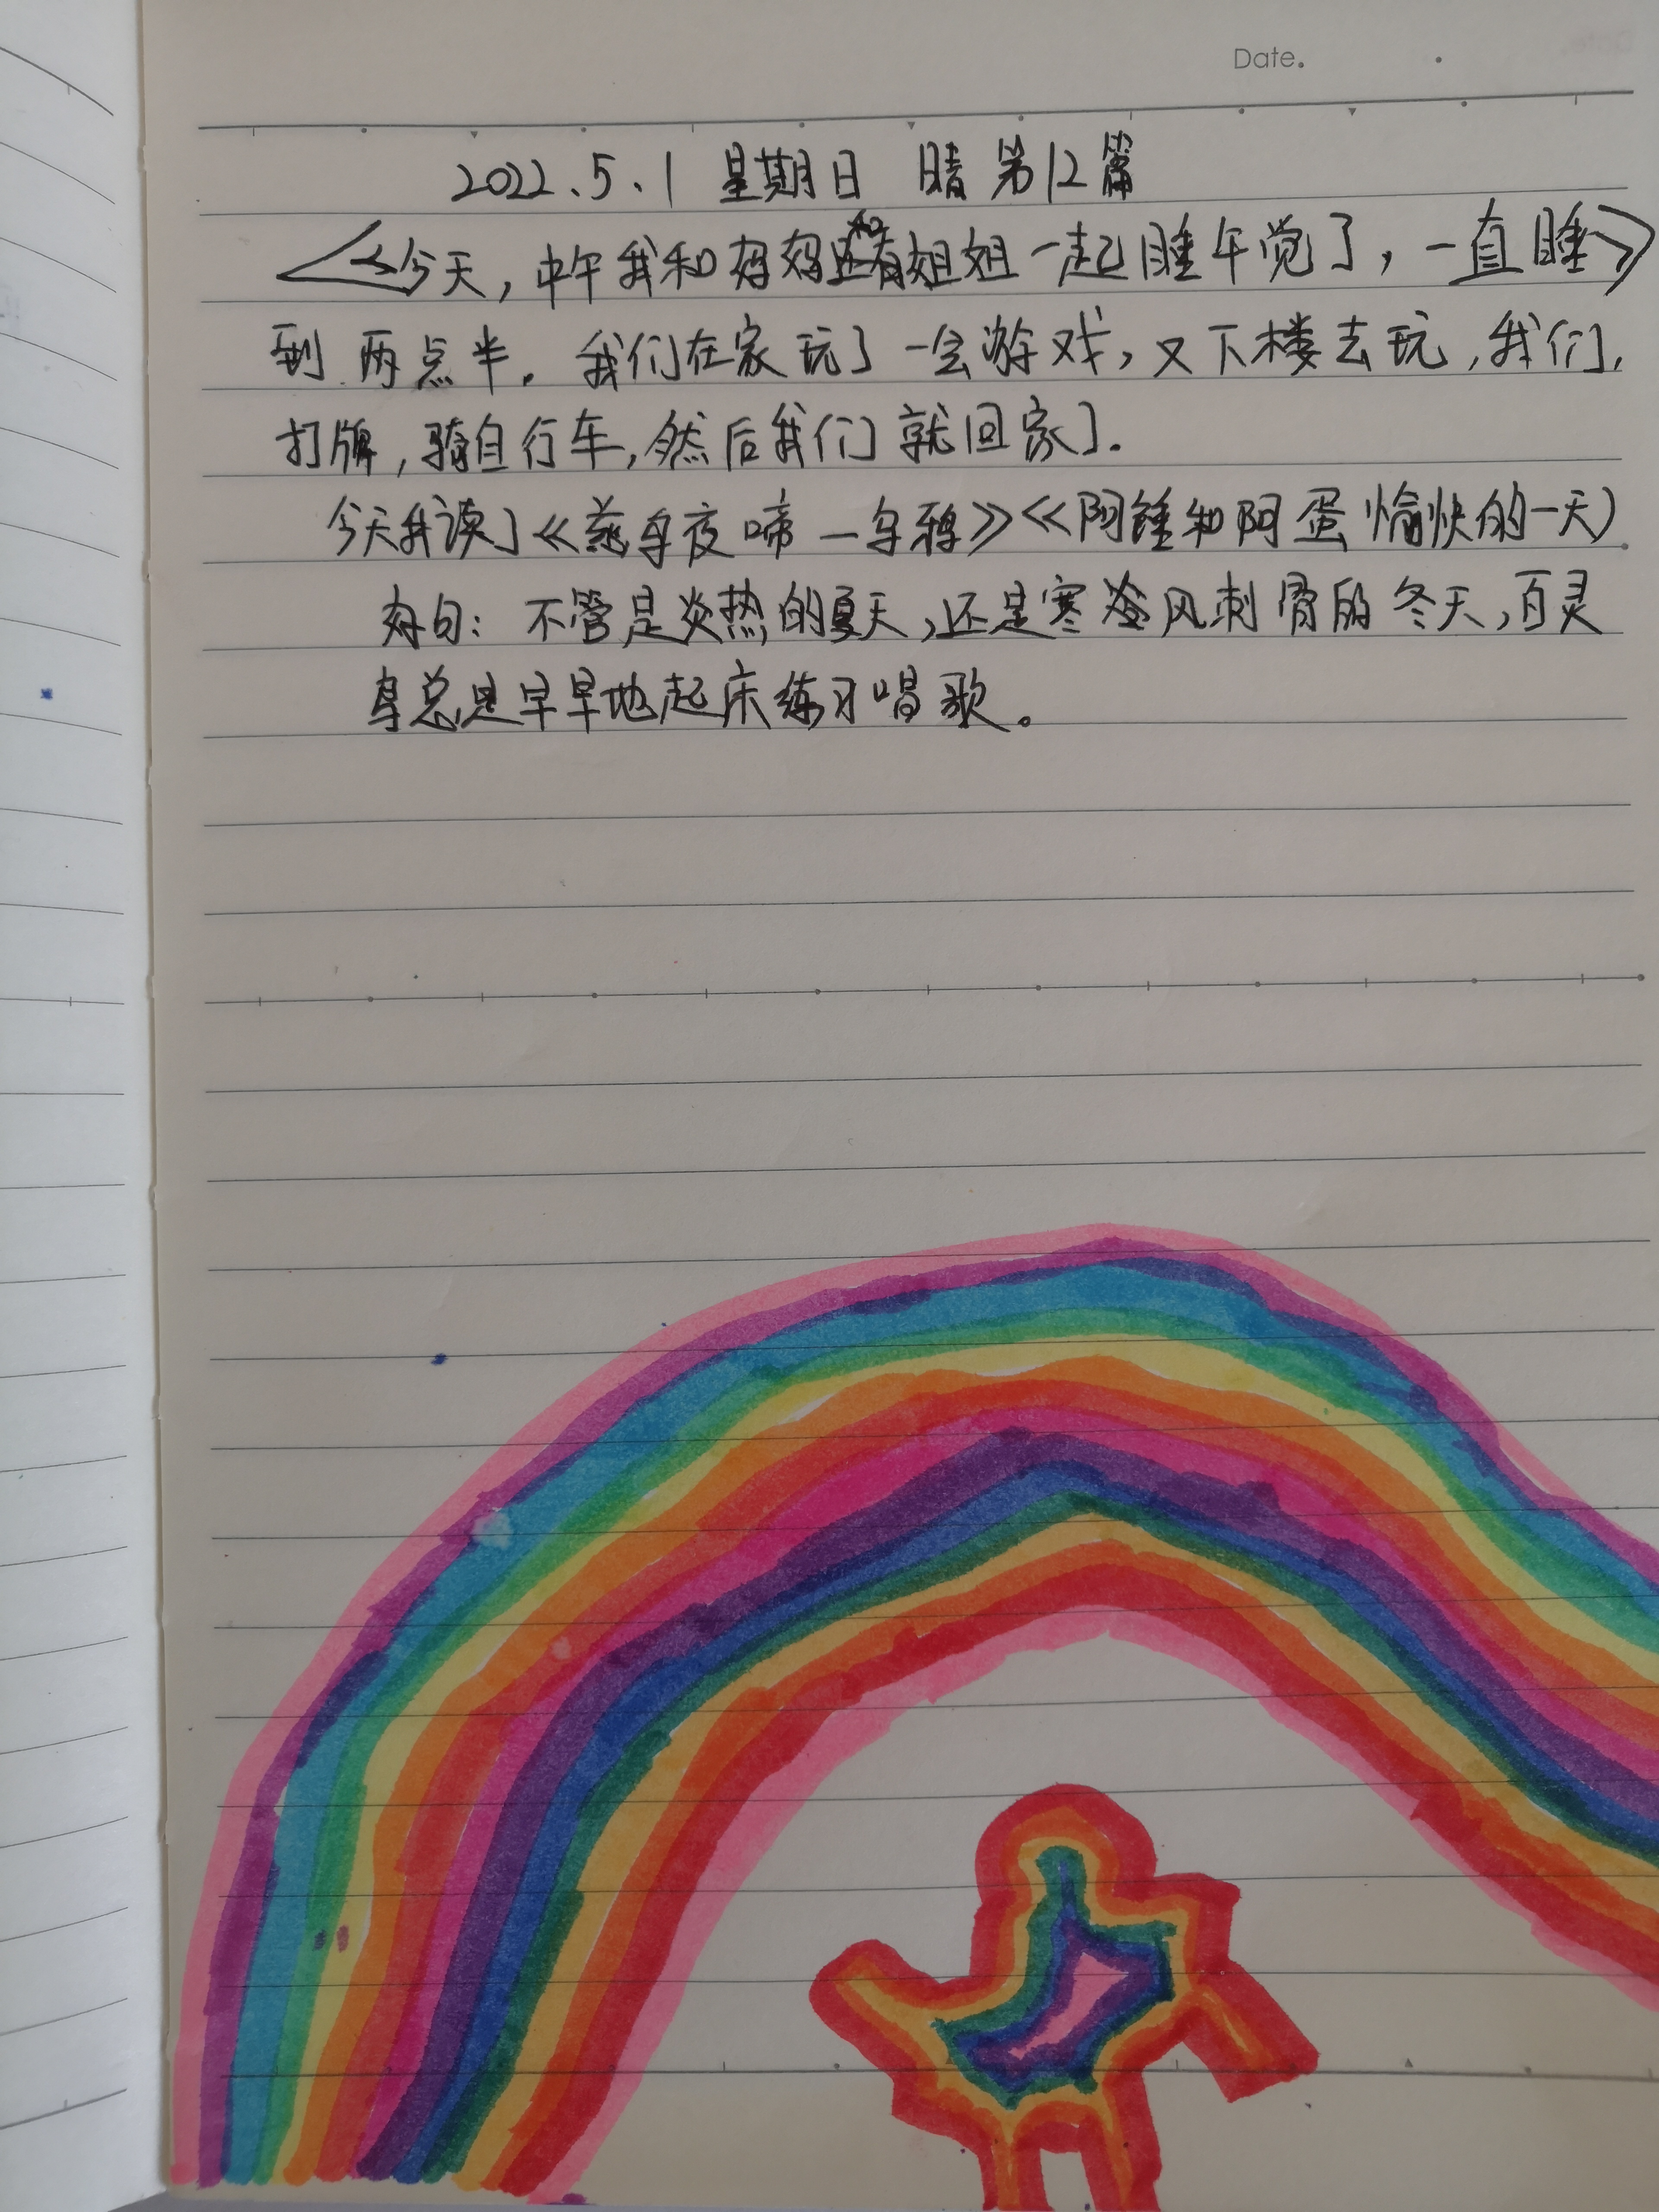 Date.
2022.5.1 星期日 晴 第12篇
今天,中午我和妈妈和姐姐一起睡午觉了,一直睡
到两点半。我们在家玩了一会游戏,又下楼去玩,我们,
打牌,骑自行车,然后我们就回家了.
今天我读了《慈乌夜啼—乌鸦》《阿锤和阿蛋愉快的一天》
好句:不管是炎热的夏天,还是寒冷风刺骨的冬天,百灵
鸟总是早早地起床练习唱歌。